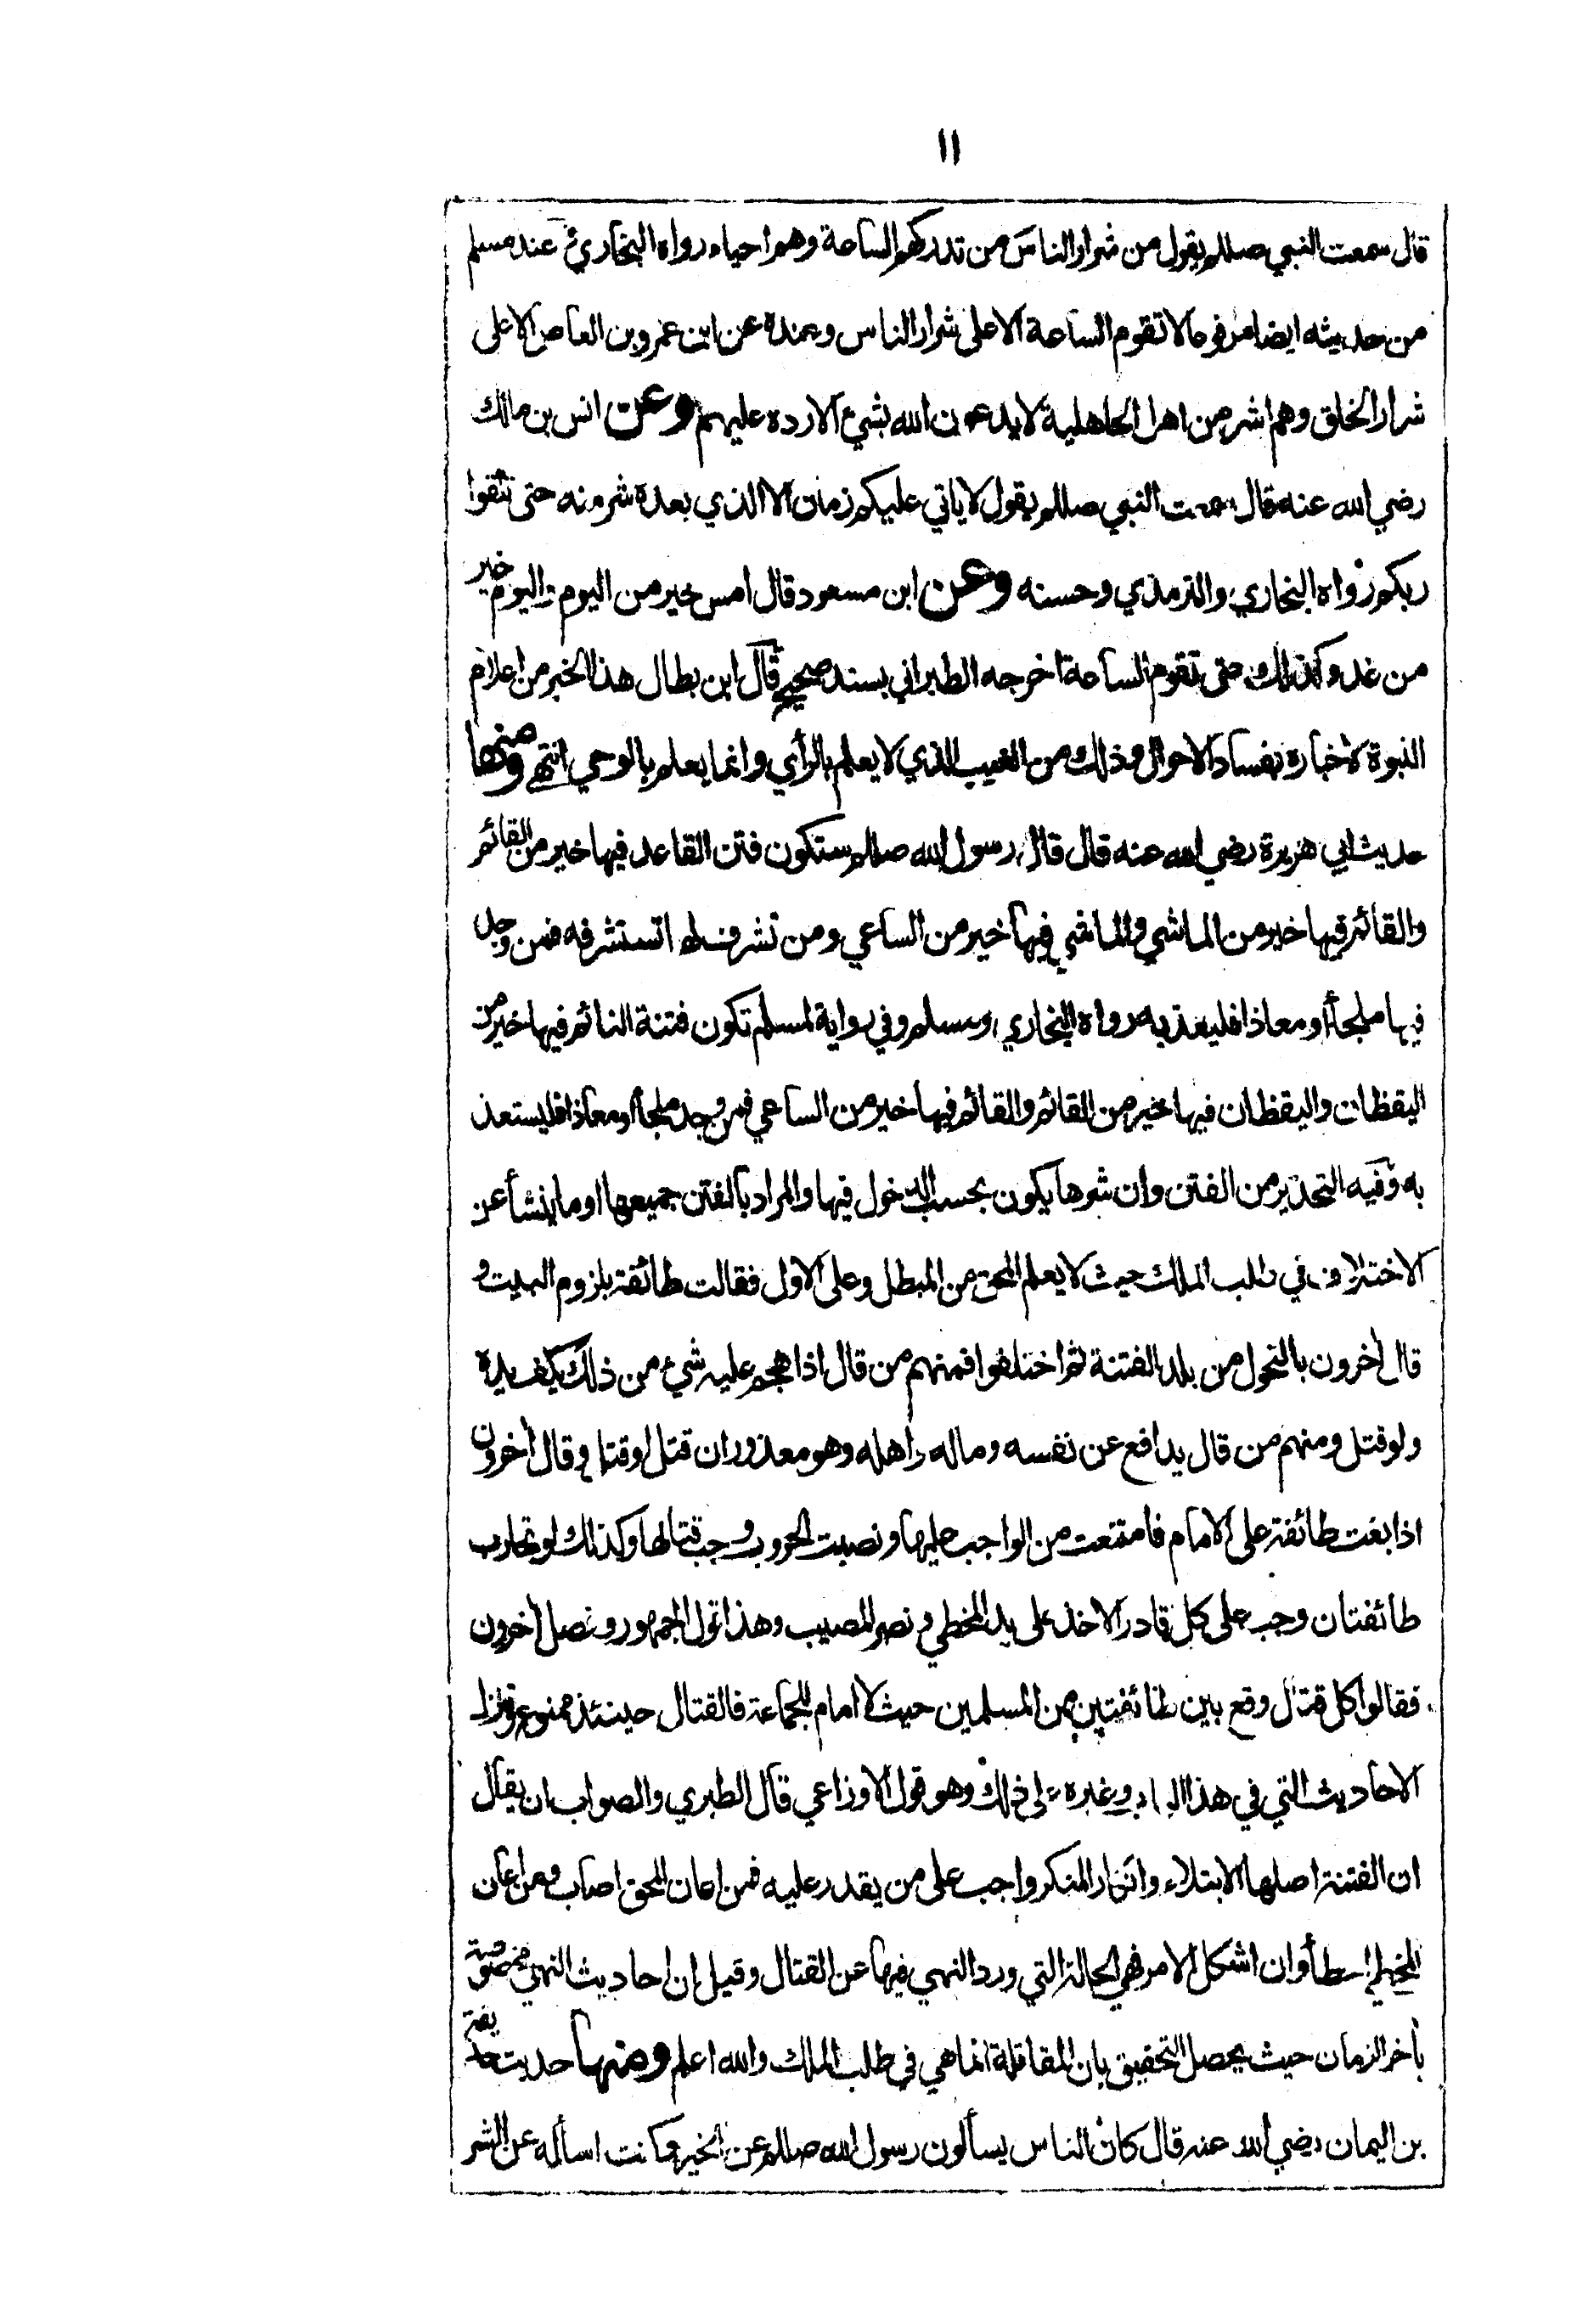 ١١
قال سمعت النبي صللم يقول من شرار الناس من تدركهم الساعة وهم احياء رواه البخاري عند مسلم
من حديثه ايضا مرفوعا لا تقوم الساعة الا على شرار الناس وعنده عن ابن عمرو بن العاص الا على
شرار الخلق وهم اشر من اهل الجاهلية لا يدعون الله بشئ الا رده عليهم وعن انس بن مالك
رضي الله عنه قال سمعت النبي صللم يقول لا ياتي عليكم زمان الا الذي بعده شر منه حتى تلقوا
ربكم رواه البخاري والترمذي وحسنه وعن ابن مسعود قال امس خير من اليوم واليوم خير
من غد وكذلك حتى تقوم الساعة اخرجه الطبراني بسند صحيح قال ابن بطال هذا الخبر من اعلام
النبوة لاخباره بفساد الاحوال وذلك من الغيب الذي لا يعلم بالرأي وانما يعلم بالوحي انتهى ومنها
حديث ابي هريرة رضي الله عنه قال قال رسول الله صللم ستكون فتن القاعد فيها خير من القائم
والقائم فيها خير من الماشي والماشي فيها خير من الساعي ومن تشرف لها تستشرفه فمن وجد
فيها ملجأ أو معاذا فليعذ به رواه البخاري ومسلم وفي رواية لمسلم تكون فتنة النائم فيها خير من
اليقظان واليقظان فيها خير من القائم والقائم فيها خير من الساعي فمن وجد ملجأ او معاذا فليستعذ
به وفيه التحذير من الفتن وان شرها يكون بحسب الدخول فيها والمراد بالفتن جميعها او ما ينشأ عن
الاختلاف في طلب الملك حيث لا يعلم المحق من المبطل وعلى الاول فقالت طائفة بلزوم البيت و
قال اخرون بالتحول من بلد الفتنة ثم اختلفوا فمنهم من قال اذا هجم عليه شئ من ذلك يكف يده
ولو قتل ومنهم من قال يدافع عن نفسه وماله واهله وهو معذور ان قتل او قتل وقال اخرون
اذا بغت طائفة على الامام فامتنعت من الواجب عليها ونصبت الحروب وجب قتالها وكذلك لو تحارب
طائفتان وجب على كل قادر الاخذ على يد المخطي ونصر المصيب وهذا قول الجمهور وفصل اخرون
فقالوا كل قتال وقع بين طائفتين من المسلمين حيث لا امام للجماعة فالقتال حينئذ ممنوع وتنزل
الاحاديث التي في هذا الباب وغيره على ذلك وهو قول الاوزاعي قال الطبري والصواب ان يقال
ان الفتنة اصلها الابتلاء وانكار المنكر واجب على من يقدر عليه فمن اعان المحق اصاب ومن اعان
المخطي اخطأ وان اشكل الامر فهي الحالة التي ورد النهي فيها عن القتال وقيل ان احاديث النهي مخصوصة
بأخر الزمان حيث يحصل التحقيق بان المقاتلة انما هي في طلب الملك والله اعلم ومنها حديث حذيفة
بن اليمان رضي الله عنه قال كان الناس يسألون رسول الله صللم عن الخير وكنت اسأله عن الشر